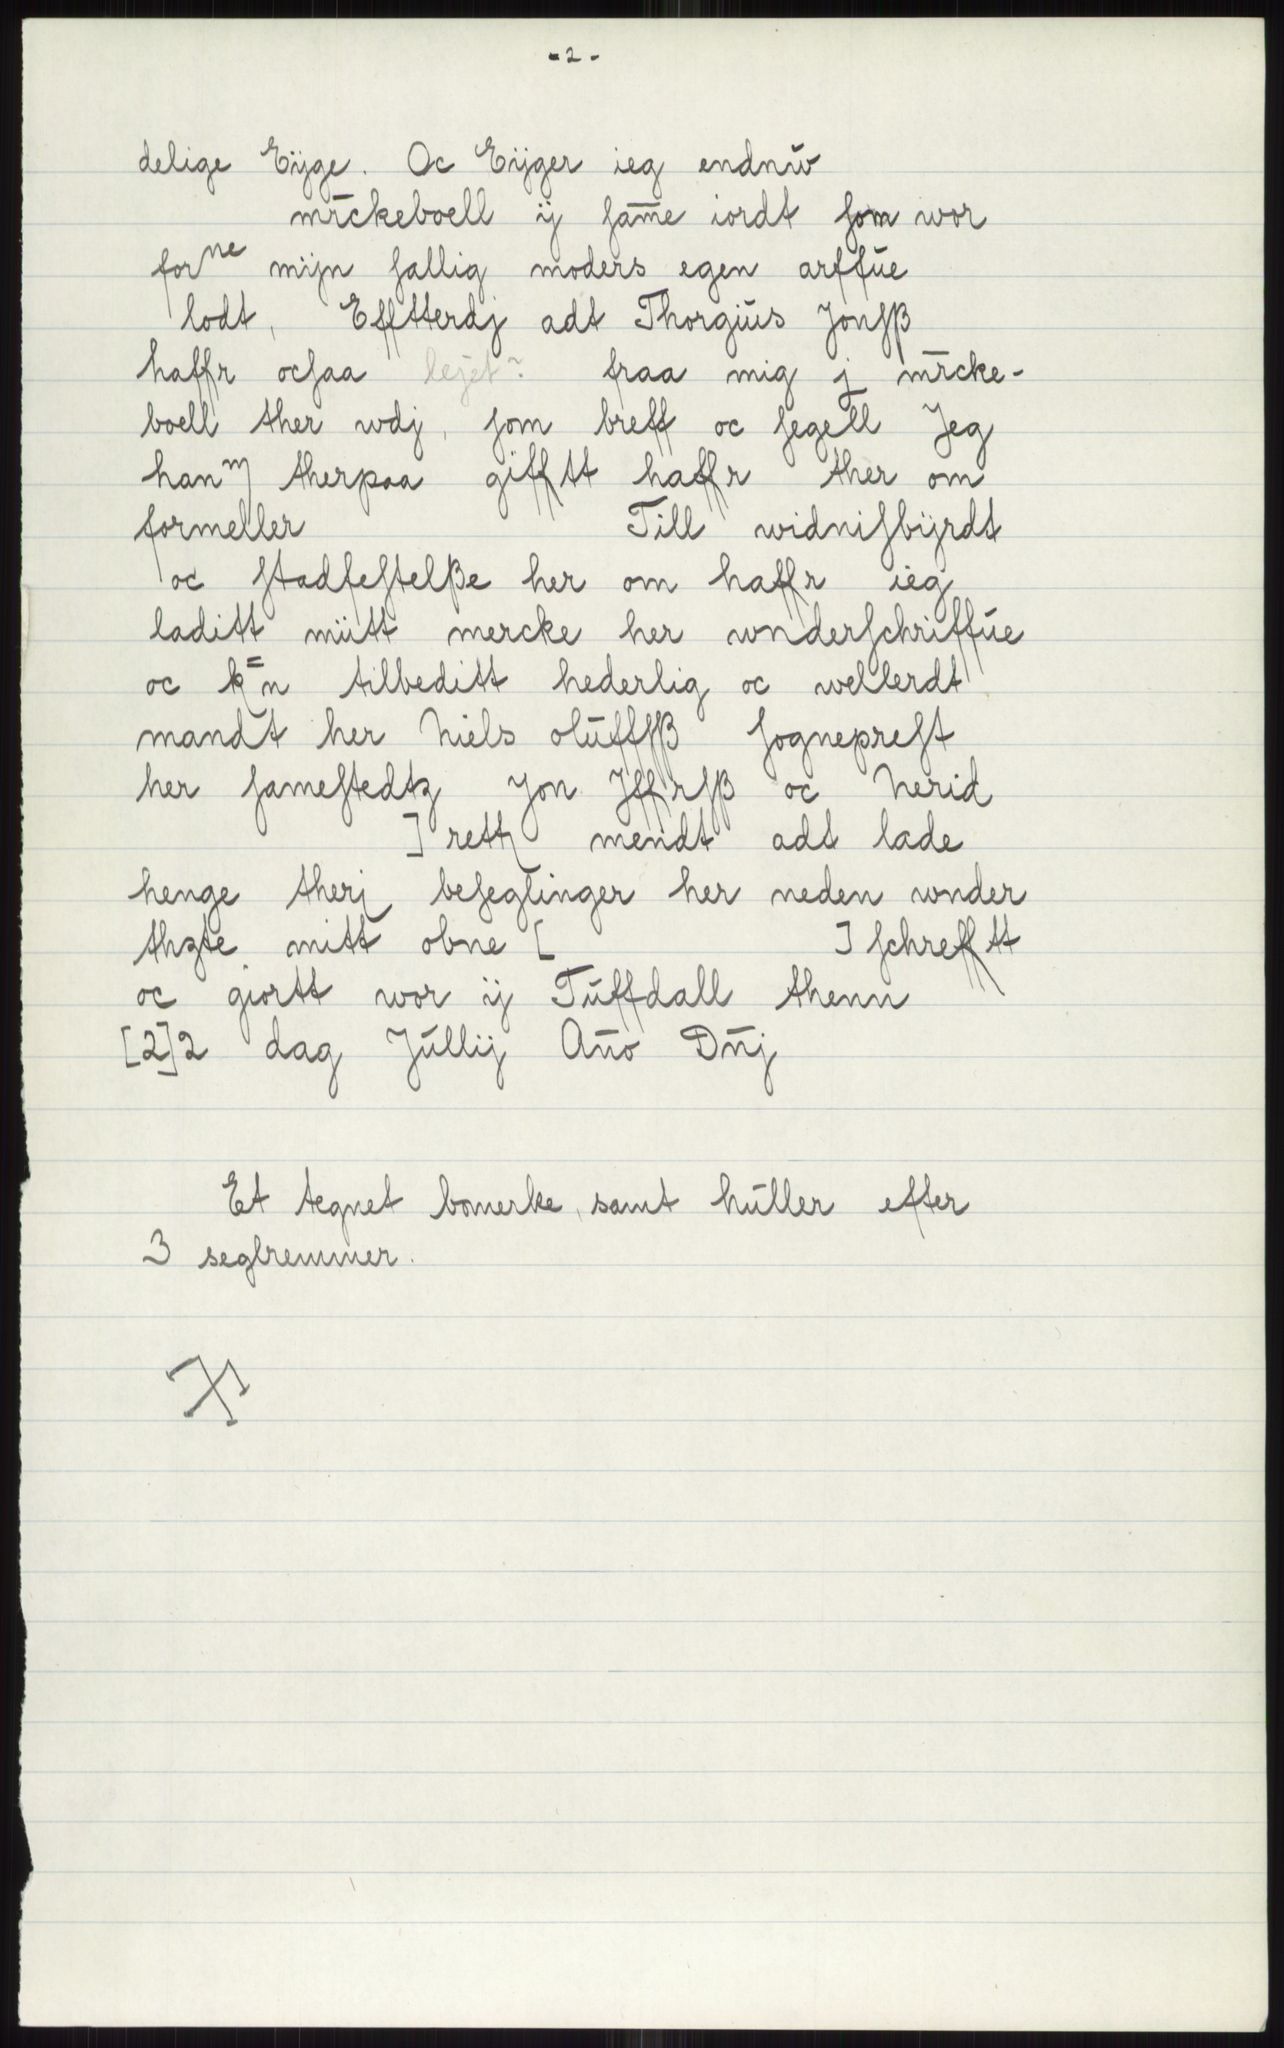 - 2 -
delige Eÿge. Oc Eÿger ieg endnŭ
mr̄ckeboell ij ſam̄e iordt ſom wor
forⁿᵉ mijn ſallig moders egen arffŭe
lodt, Effterdj adt Thorgiŭs Jonſß
haffr ocſaa lejet? fraa mig j mr̄cke-
boell ther wdj, ſom breff oc ſegell Jeg
hanᵐ therpaa giffttt haffr ther om
formeller Till widniſbÿrdt
oc ſtadfeſtelße her om haffr ieg
laditt mitt mercke her wnderſchriffŭe
oc k=n tilbeditt hederlig oc wellerdt
mandt her Niels olŭffſß ſognepreſt
her ſameſtedtz Jon Jffrſß oc Nerid
] rettz mendt adt lade
henge therj beſeglinger her neden wnder
thzte mitt obne [ ] ſchrefftt
oc giortt wor ij Tŭffdall thenn
[2]2 dag Jŭllij An̄o Dn̄j
Et tegnet bomerke, samt hŭller efter
3 seglremmer.